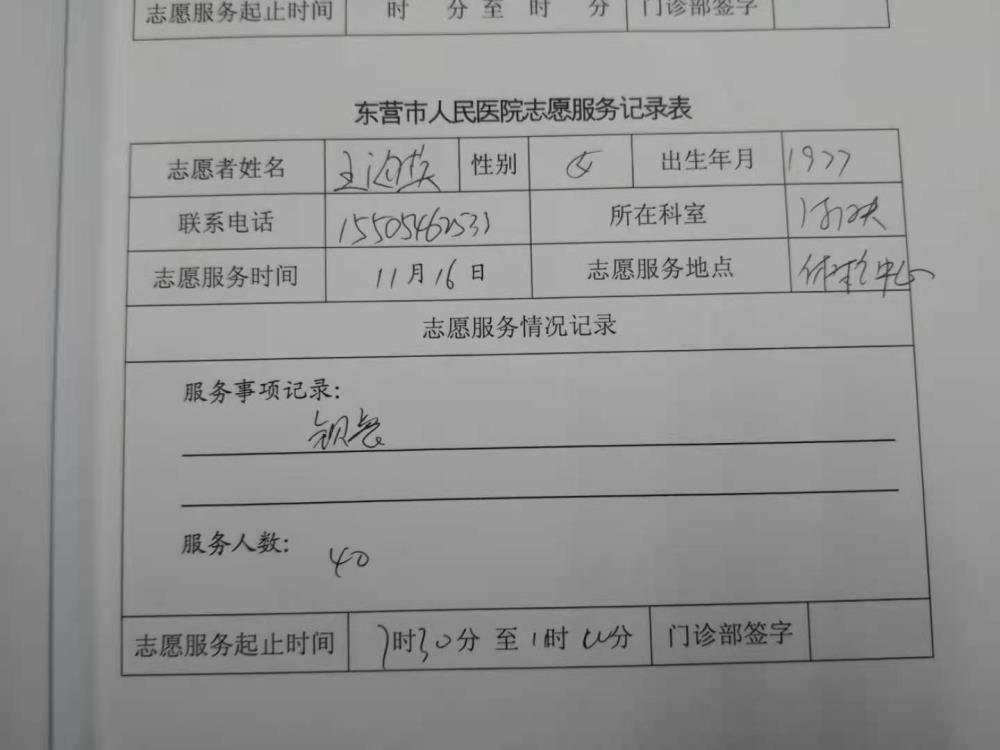 志愿服务起止时间 时 分 至 时 分 门诊部签字
东营市人民医院志愿服务记录表
志愿者姓名 王 性别 女 出生年月 1977
联系电话 15505462531 所在科室
志愿服务时间 11月16日 志愿服务地点 体检中心
志愿服务情况记录
服务事项记录:
服务人数: 40
志愿服务起止时间 7时30分 至 1时00分 门诊部签字